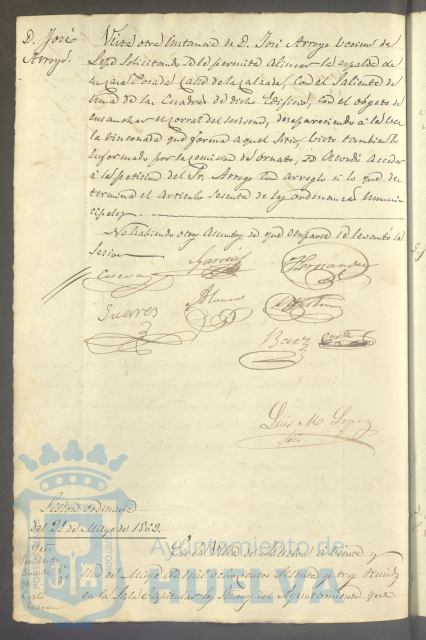 D. José
Arroyo.
Vista otra instancia de D. José Arroyo vecino de
solicitando se le permita alinear la espalda de
su casa Posada calle de la Calzada, con el saliente de
una de las cuadras de dicho edificio, con el objeto de
ensanchar el corral del mismo, desapareciendo á la vez
la rinconada que forma aquel sitio, visto tambien lo
informado por la comision de ornato, se acordó acceder
á la peticion del Sr. Arroyo con arreglo á lo que de-
termina el articulo sesenta de las ordenanzas muni-
cipales.
No habiendo otros asuntos de que ocuparse se levantó la
sesion
Garcia
Hernandez
Suarez
Alonso
Martin
Baez
Luis M. Lopez
Srio
Sesion ordinaria
del 21 de Mayo de 1863.
En la Villa de Huelva á veinte y
uno de Mayo de mil ochocientos sesenta y tres reunidos
en la Sala Capitular los Sres. del Ayuntamiento que
Ayuntamiento de
HUELVA